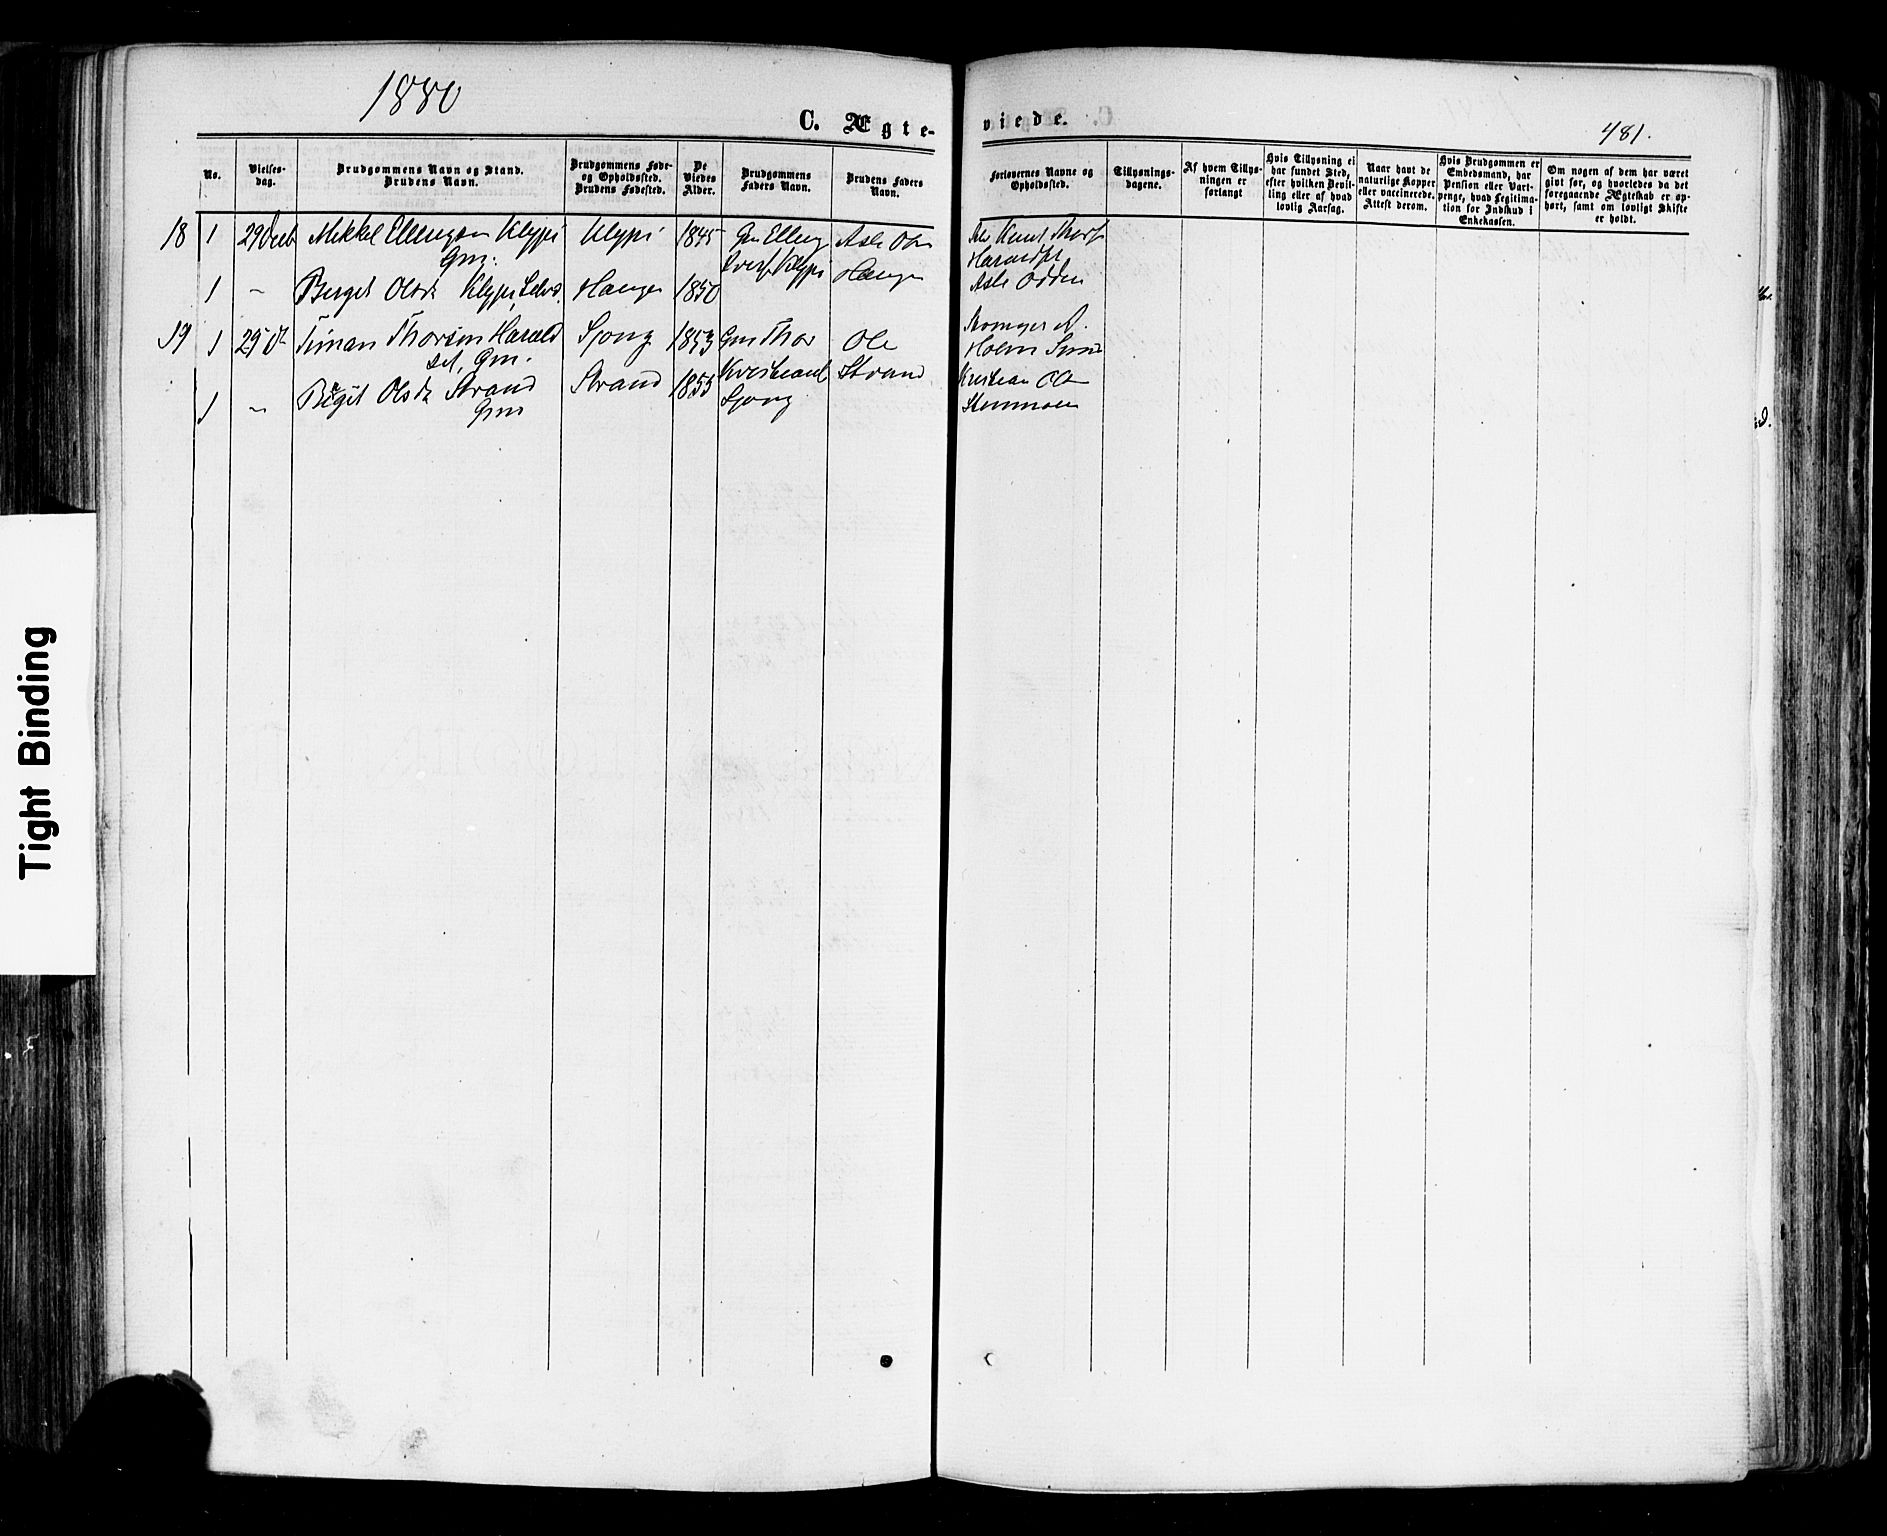 1880
C. Ægte-
viede.
481.
No.
Vielses-
dag.
Brudgommens Navn og Stand.
Brudens Navn.
Brudgommens Føde-
og Opholdssted.
Brudens Fødested.
De
Viedes
Alder.
Brudgommens
Faders Navn.
Brudens Faders
Navn.
Forlovernes Navne og
Opholdssted.
Tillysnings-
dagene.
Af hvem Tillys-
ningen er
forlangt
Hvis Tillysning ei
har fundet Sted,
efter hvilken Bevil-
ling eller af hvad
lovlig Aarsag.
Naar havt de
naturlige Kopper
eller vaccinerede.
Attest derom.
Hvis Brudgommen er
Embedsmand, har
Pension eller Vart-
penge, hvad Legitima-
tion for Indskud i
Enkekassen.
Om nogen af dem har været
givt før, og hvorledes da det
foregaaende Ægteskab er op-
hørt, samt om lovligt Skifte
er holdt.
18 1 29 Decb Mikkel Ellingsen Klypi
Gm.
Klypi 1845 Gm Elling
Klypi
Asle
Haugen
Knut
Asle Odden
1 - Berget Olsdr Klypi, Haugen 1850
19 1 29 Dc Timan Thorsen Harald
set, Gm.
Sjong 1853 Gm Thor
Sjong
Ole
Strand
Holm
Kristian
1 - Birgit Olsdr Strand
Gm
Strand 1855
Tight Binding